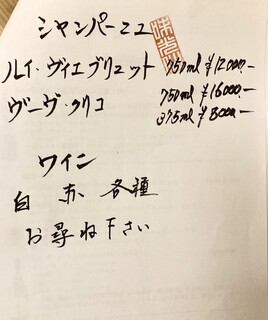 シャンパーニュ
ルイ・ヴィエブリュット 750ml ¥12000.-
ヴーヴ・クリコ 750ml ¥16000.-
375ml ¥8000.-
ワイン
白 赤 各種
お尋ね下さい